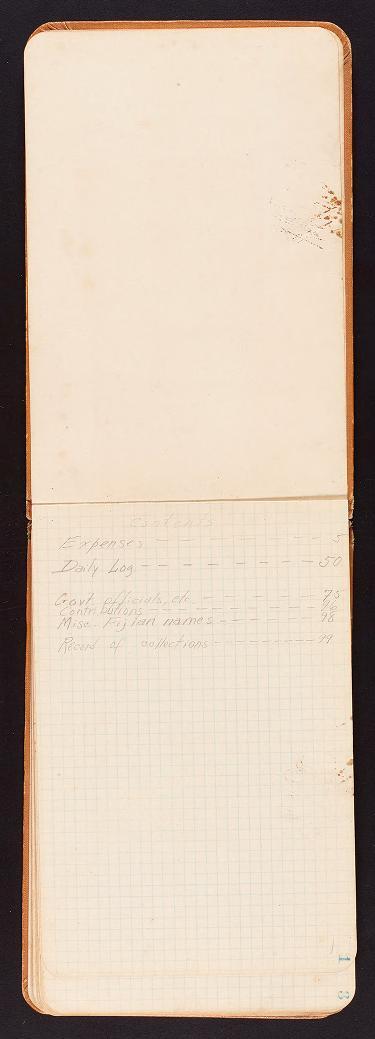 Contents
Expenses — — — — — — — — 5
Daily Log — — — — — — — — 50
Govt. officials, etc — — — — 75
Contributions — — — — — — 96
Misc. Fijian names — — — — 98
Record of collections — — — — 99
1
3